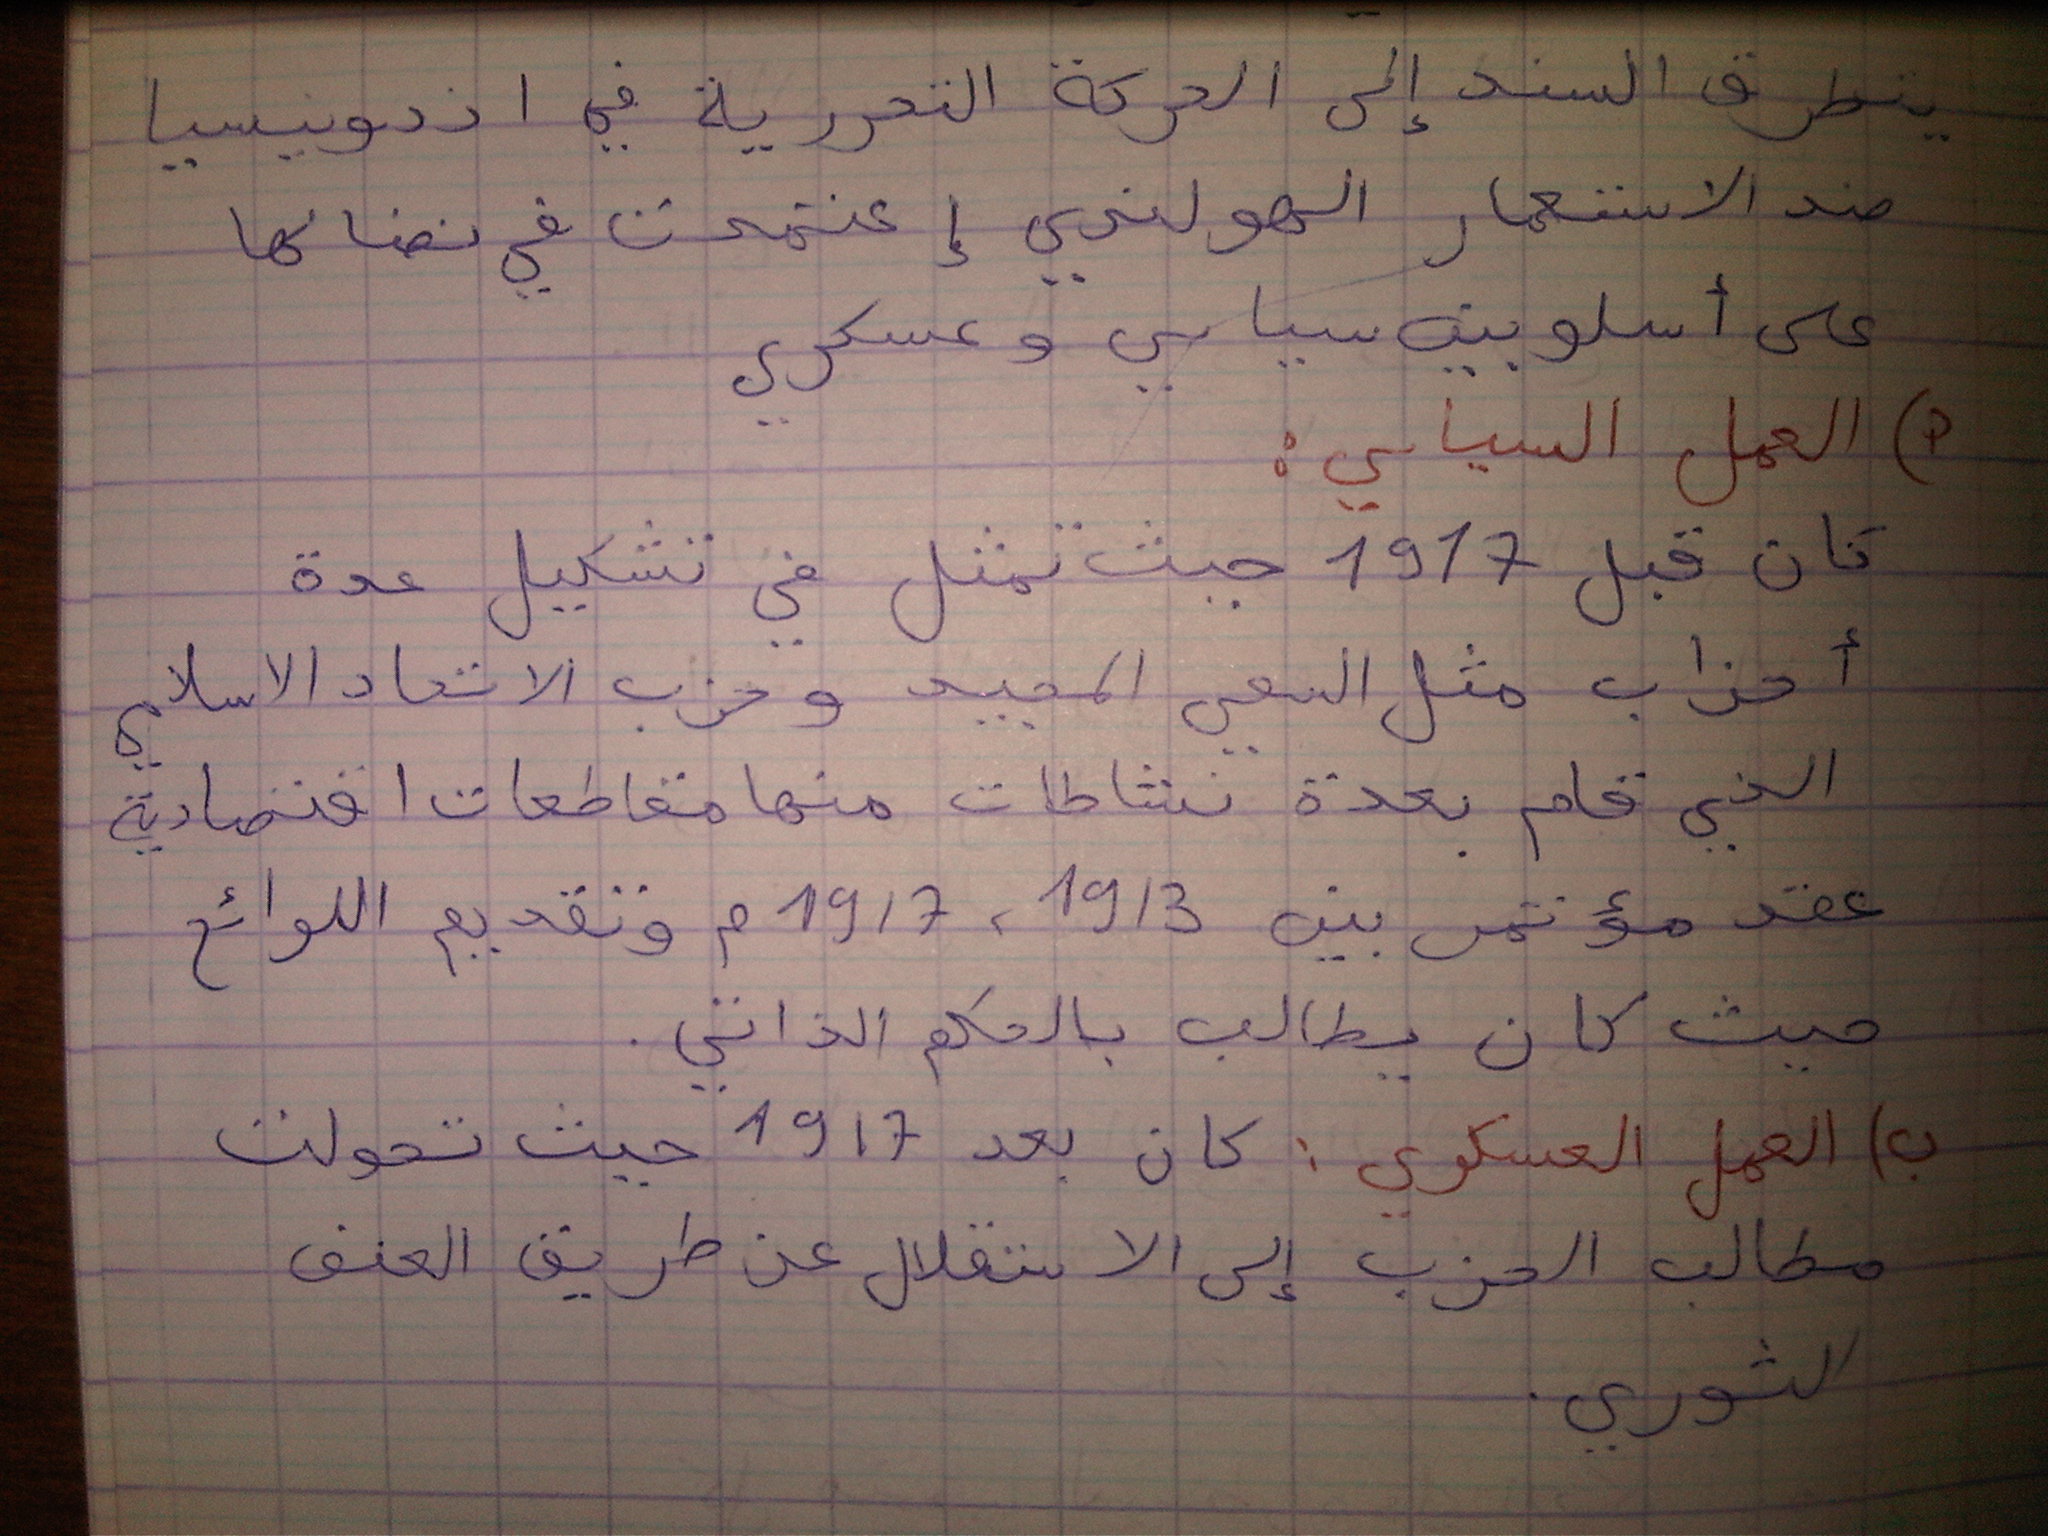 يتطرق السند إلى الحركة التحررية في اندونيسيا
ضد الاستعمار الهولندي إعتمدت في نضالها
على أسلوبين سياسي و عسكري
أ) العمل السياسي :
كان قبل 1917 حيث تمثل في تشكيل عدة
أحزاب مثل السعي المجيد و حزب الاتحاد الاسلامي
الذي قام بعدة نشاطات منها مقاطعات اقتصادية
عقد مؤتمر بين 1913، 1917م وتقديم اللوائح
حيث كان يطالب بالحكم الذاتي .
ب) العمل العسكري : كان بعد 1917 حيث تحولت
مطالب الحزب إلى الاستقلال عن طريق العنف
الثوري .